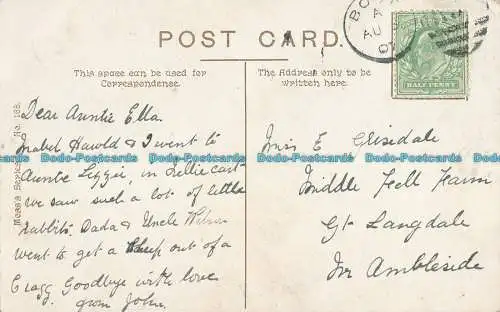 POST CARD.
This space can be used for
Correspondence.
The Address only to be
written here.
HALF PENNY
No. 168.
Dear Auntie Ella.
Isabel Harold & I went to
Auntie Lizzie, in Nellie Cart
we saw such a lot of little
rabbits. Dada & Uncle
went to get a sheep out of a
Cragg Goodbye with love
from John.
Miss E Grisedale
Middle Fell Farm
Gt Langdale
Nr Ambleside
Dodo-Postcards Dodo-Postcards Dodo-Postcards Dodo-Postcards Dodo-Postcards